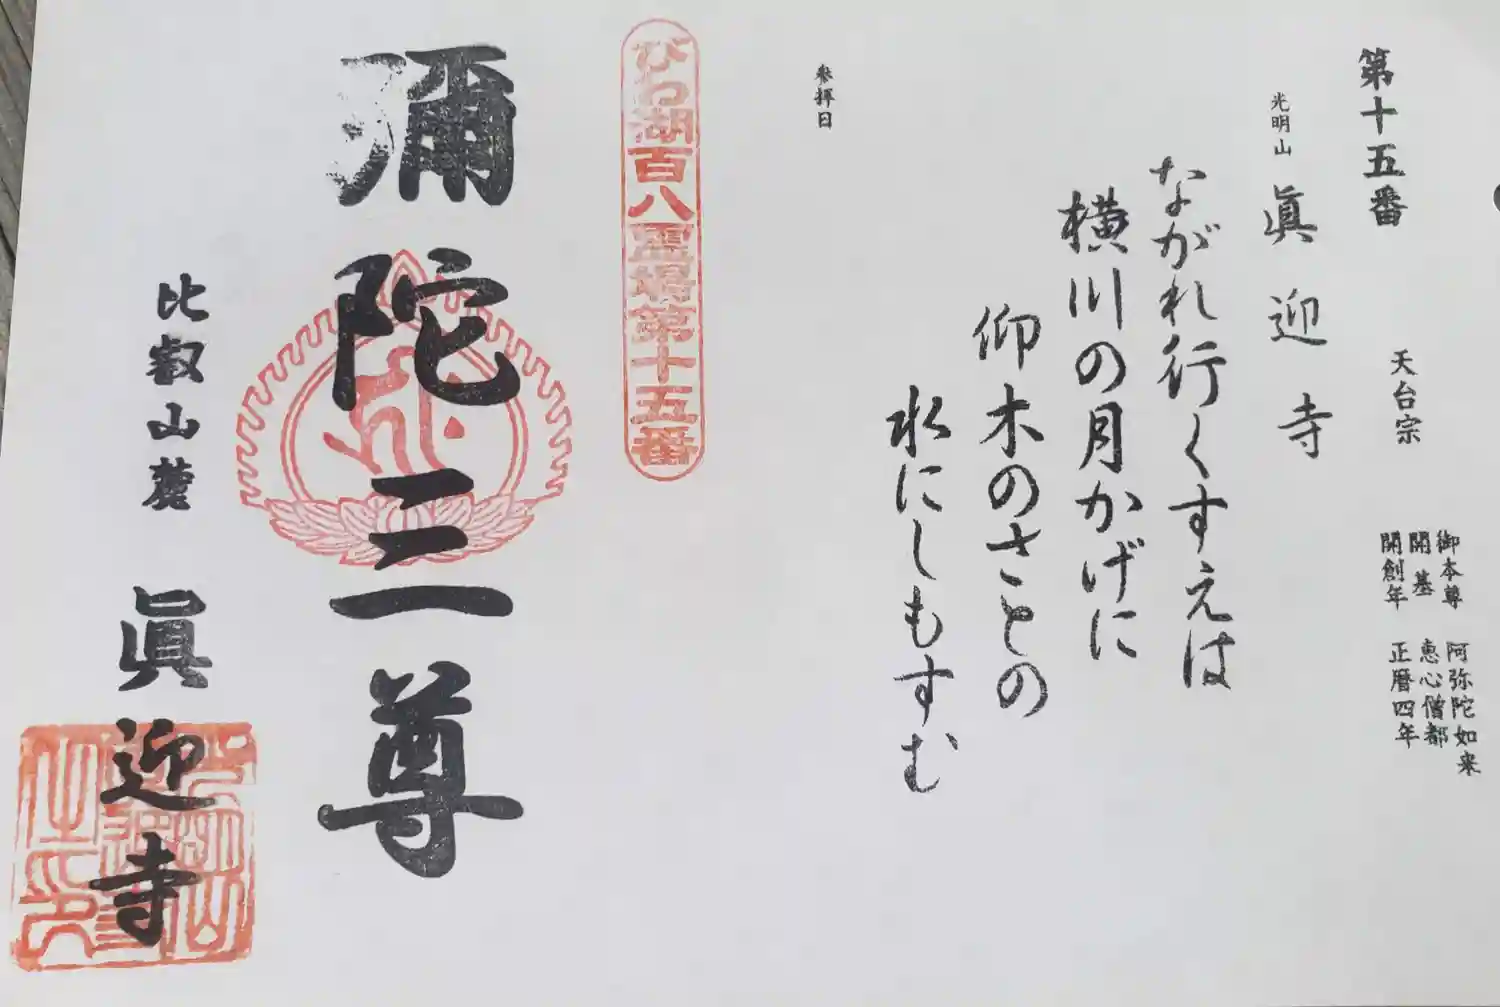 第十五番
天台宗
御本尊 阿弥陀如来
開基 恵心僧都
開創年 正暦四年
光明山 眞迎寺
ながれ行くすえは
横川の月かげに
仰木のさとの
水にしもすむ
参拝日
びわ湖百八霊場第十五番
彌陀三尊
比叡山麓 眞迎寺